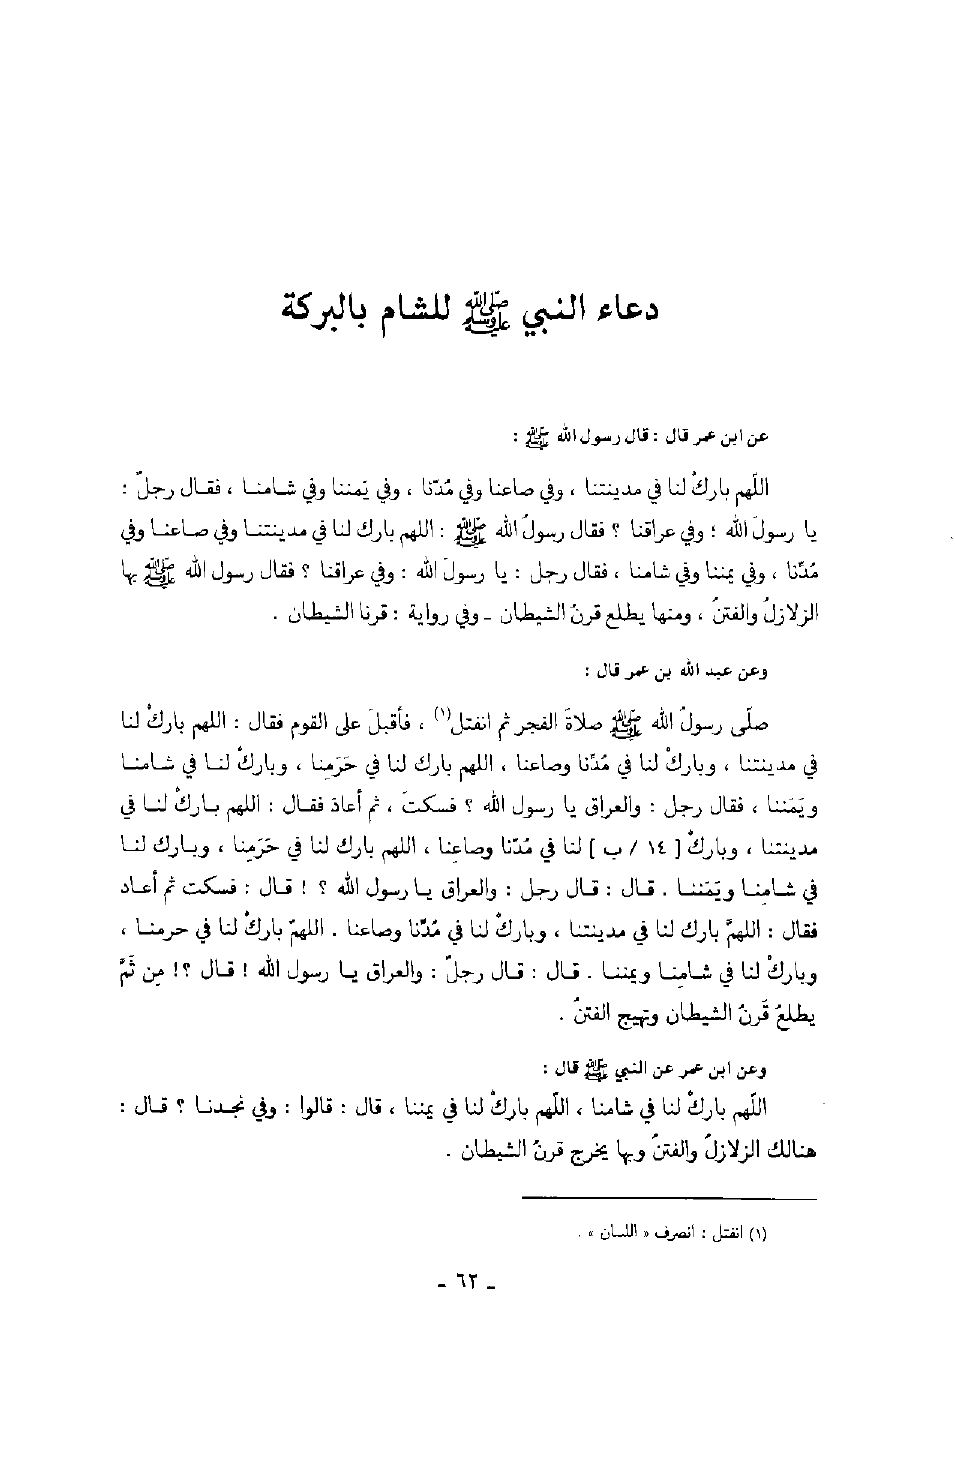 دعاء النبي ﷺ للشام بالبركة
عن ابن عمر قال : قال رسول الله ﷺ :
اللّهم باركْ لنا في مدينتنا ، وفي صاعنا وفي مُدّنا ، وفي يَمننا وفي شامنا ، فقال رجلٌ :
يا رسولَ الله ؛ وفي عراقنا ؟ فقال رسولُ الله ﷺ : اللهم بارك لنا في مدينتنا وفي صاعنا وفي
مُدّنا ، وفي يمننا وفي شامنا ، فقال رجل : يا رسولَ الله : وفي عراقنا ؟ فقال رسول الله ﷺ بها
الزلازلُ والفتنُ ، ومنها يطلع قرنُ الشيطان ـ وفي رواية : قرنا الشيطان .
وعن عبد الله بن عمر قال :
صلّى رسولُ الله ﷺ صلاةَ الفجر ثم انفتل(١) ، فأقبلَ على القوم فقال : اللهم باركْ لنا
في مدينتنا ، وباركْ لنا في مُدّنا وصاعنا ، اللهم بارك لنا في حَرَمِنا ، وباركْ لنا في شامنا
ويَمَننا ، فقال رجل : والعراق يا رسول الله ؟ فسكتَ ، ثم أعادَ فقال : اللهم باركْ لنا في
مدينتنا ، وباركْ [ ١٤ / ب ] لنا في مُدّنا وصاعِنا ، اللهم بارك لنا في حَرَمِنا ، وبارك لنا
في شامِنا ويَمَننا . قال : قال رجل : والعراق يا رسول الله ؟ ! قال : فسكت ثم أعاد
فقال : اللهمَّ بارك لنا في مدينتنا ، وباركْ لنا في مُدّنا وصاعنا . اللهمّ باركْ لنا في حرمنا ،
وباركْ لنا في شامِنا ويمننا . قال : قال رجلٌ : والعراق يا رسول الله ! قال ؟! مِن ثَمَّ
يطلعُ قَرنُ الشيطان وتهيج الفتنُ .
وعن ابن عمر عن النبي ﷺ قال :
اللّهم باركْ لنا في شامنا ، اللّهم باركْ لنا في يمننا ، قال : قالوا : وفي نجدنا ؟ قال :
هنالك الزلازلُ والفتنُ وبها يخرج قرنُ الشيطان .
(١) انفتل : انصرف « اللسان » .
ـ ٦٢ ـ